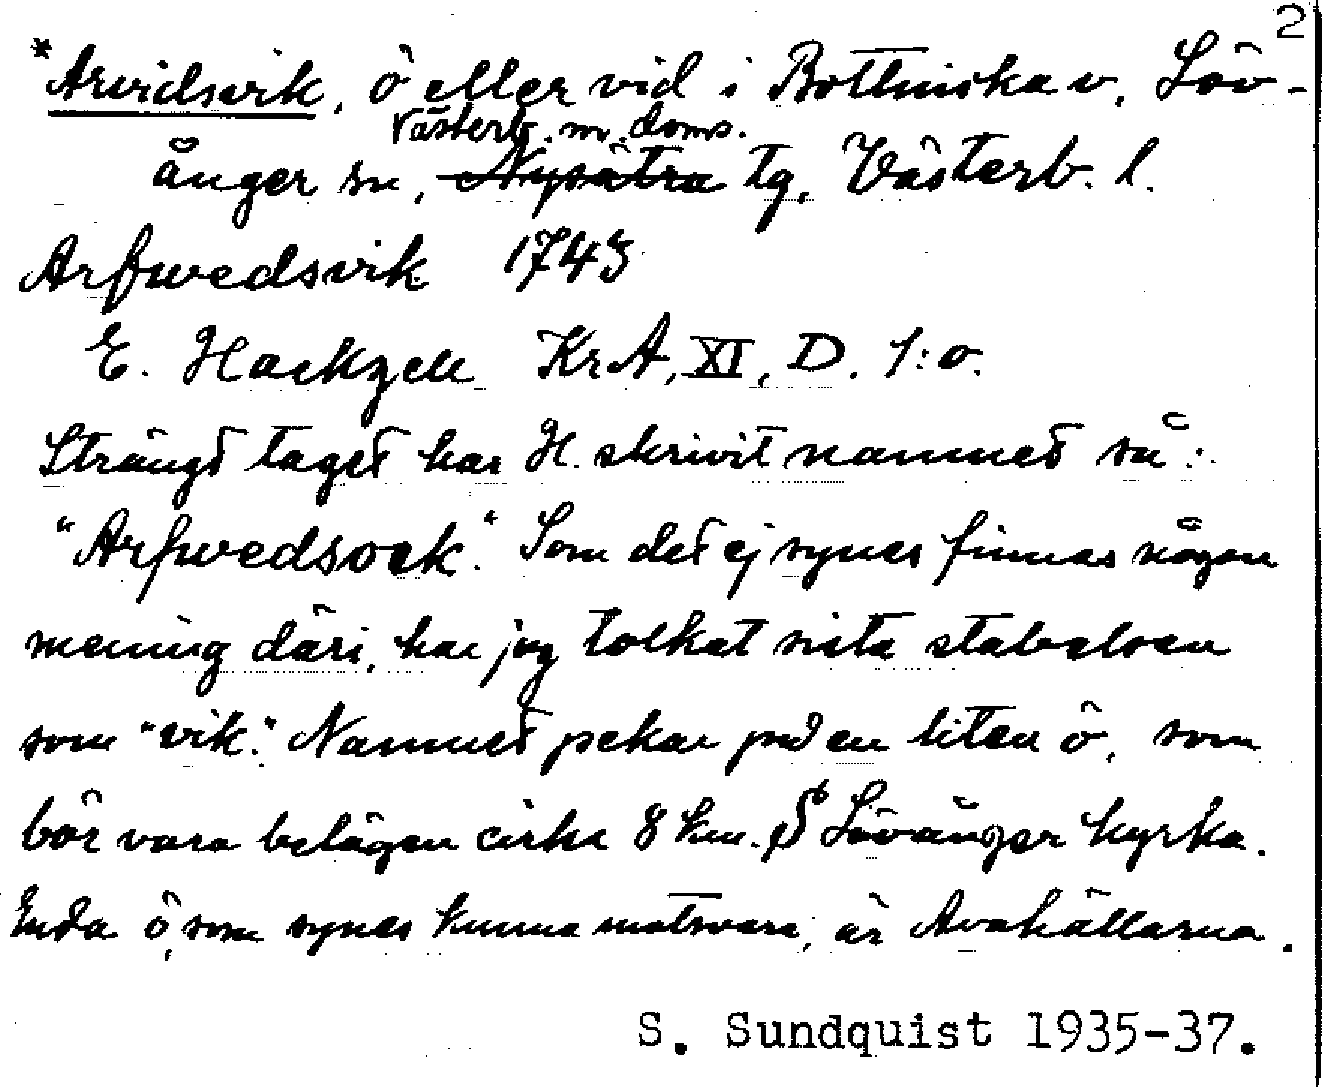 2
*Arvidsvik, ö eller vid i Bottniska v, Löv-
Västerb. m. doms.
ånger sn, Nysätra tg, Västerb. l.
Arfwedsvik 1743
E. Hackzell KrA, XI, D. 1:o.
Strängt taget har H. skrivit namnet så:
"Arfwedsock." Som det ej synes finnas någon
mening däri, har jag tolkat sista stavelsen
som "vik." Namnet pekar på en liten ö, som
bör vara belägen cirka 8 km. S Lövånger kyrka.
Enda ö, som synes kunna motsvara, är Avakällarna.
S. Sundquist 1935-37.